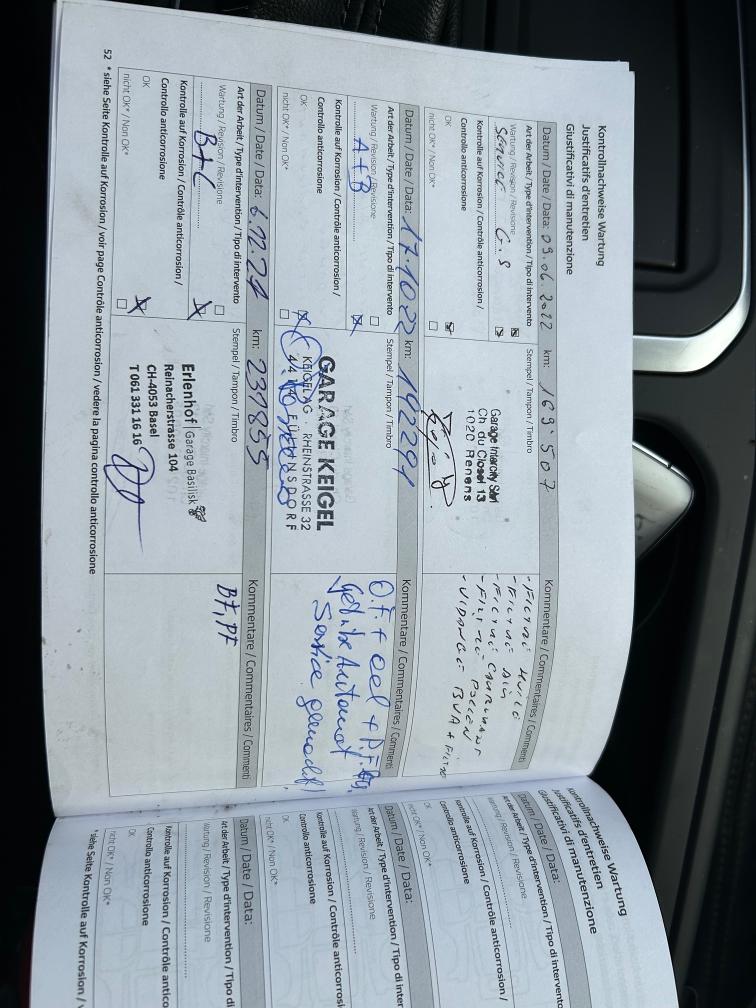 Kontrollnachweise Wartung
Justificatifs d'entretien
Giustificativi di manutenzione
Datum / Date / Data: 09.06.2022 km: 169'507 Kommentare / Commentaires / Commenti
Art der Arbeit / Type d'intervention / Tipo di intervento
Stempel / Tampon / Timbro
Wartung / Revision / Revisione
Service G.S
Kontrolle auf Korrosion / Contrôle anticorrosion /
Controllo anticorrosione
OK
nicht OK* / Non OK*
Garage Intercity Sàrl
Ch du Closel 13
1020 Renens
- FILTRE HUILE
- FILTRE AIR
- FILTRE CARBURANT
- FILTRE POLLEN
- VIDANGE BVA + FILTRE
Datum / Date / Data: 17.10.22 km: 192291 Kommentare / Commentaires / Commenti
Art der Arbeit / Type d'intervention / Tipo di intervento
Stempel / Tampon / Timbro
Wartung / Revision / Revisione
A+B
Kontrolle auf Korrosion / Contrôle anticorrosion /
Controllo anticorrosione
OK
nicht OK* / Non OK*
GARAGE KEIGEL
KEIGEL AG RHEINSTRASSE 32
FÜLLINSDORF
Getriebe Automat
Service gemacht!
Datum / Date / Data: km: 237855 Kommentare / Commentaires / Commenti
Art der Arbeit / Type d'intervention / Tipo di intervento
Stempel / Tampon / Timbro
Wartung / Revision / Revisione
B+C
Kontrolle auf Korrosion / Contrôle anticorrosion /
Controllo anticorrosione
OK
nicht OK* / Non OK*
Erlenhof Garage Basilisk
Reinacherstrasse 104
CH-4053 Basel
T 061 331 16 16
BF, PF
52 * siehe Seite Kontrolle auf Korrosion / voir page Contrôle anticorrosion / vedere la pagina controllo anticorrosione
Kontrollnachweise Wartung
Justificatifs d'entretien
Giustificativi di manutenzione
Datum / Date / Data:
Art der Arbeit / Type d'intervention / Tipo di intervento
Wartung / Revision / Revisione
Kontrolle auf Korrosion / Contrôle anticorrosion /
Controllo anticorrosione
OK
nicht OK* / Non OK*
Datum / Date / Data:
Art der Arbeit / Type d'intervention / Tipo di inter
Wartung / Revision / Revisione
Kontrolle auf Korrosion / Contrôle anticorrosion
Controllo anticorrosione
OK
nicht OK* / Non OK*
Datum / Date / Data:
Art der Arbeit / Type d'intervention / Tipo di
Wartung / Revision / Revisione
Kontrolle auf Korrosion / Contrôle antico
Controllo anticorrosione
OK
nicht OK* / Non OK*
* siehe Seite Kontrolle auf Korrosion / v